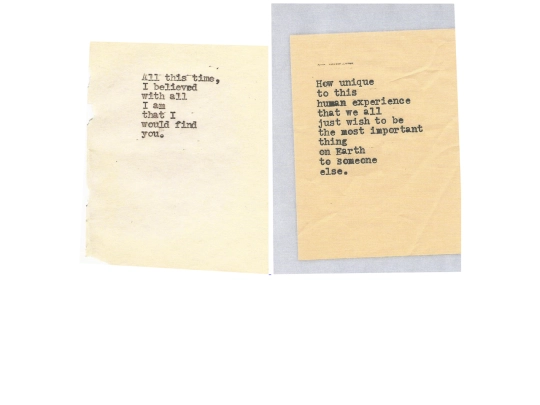 All this time,
I believed
with all
I am
that I
would find
you.
How unique
to this
human experience
that we all
just wish to be
the most important
thing
on Earth
to someone
else.